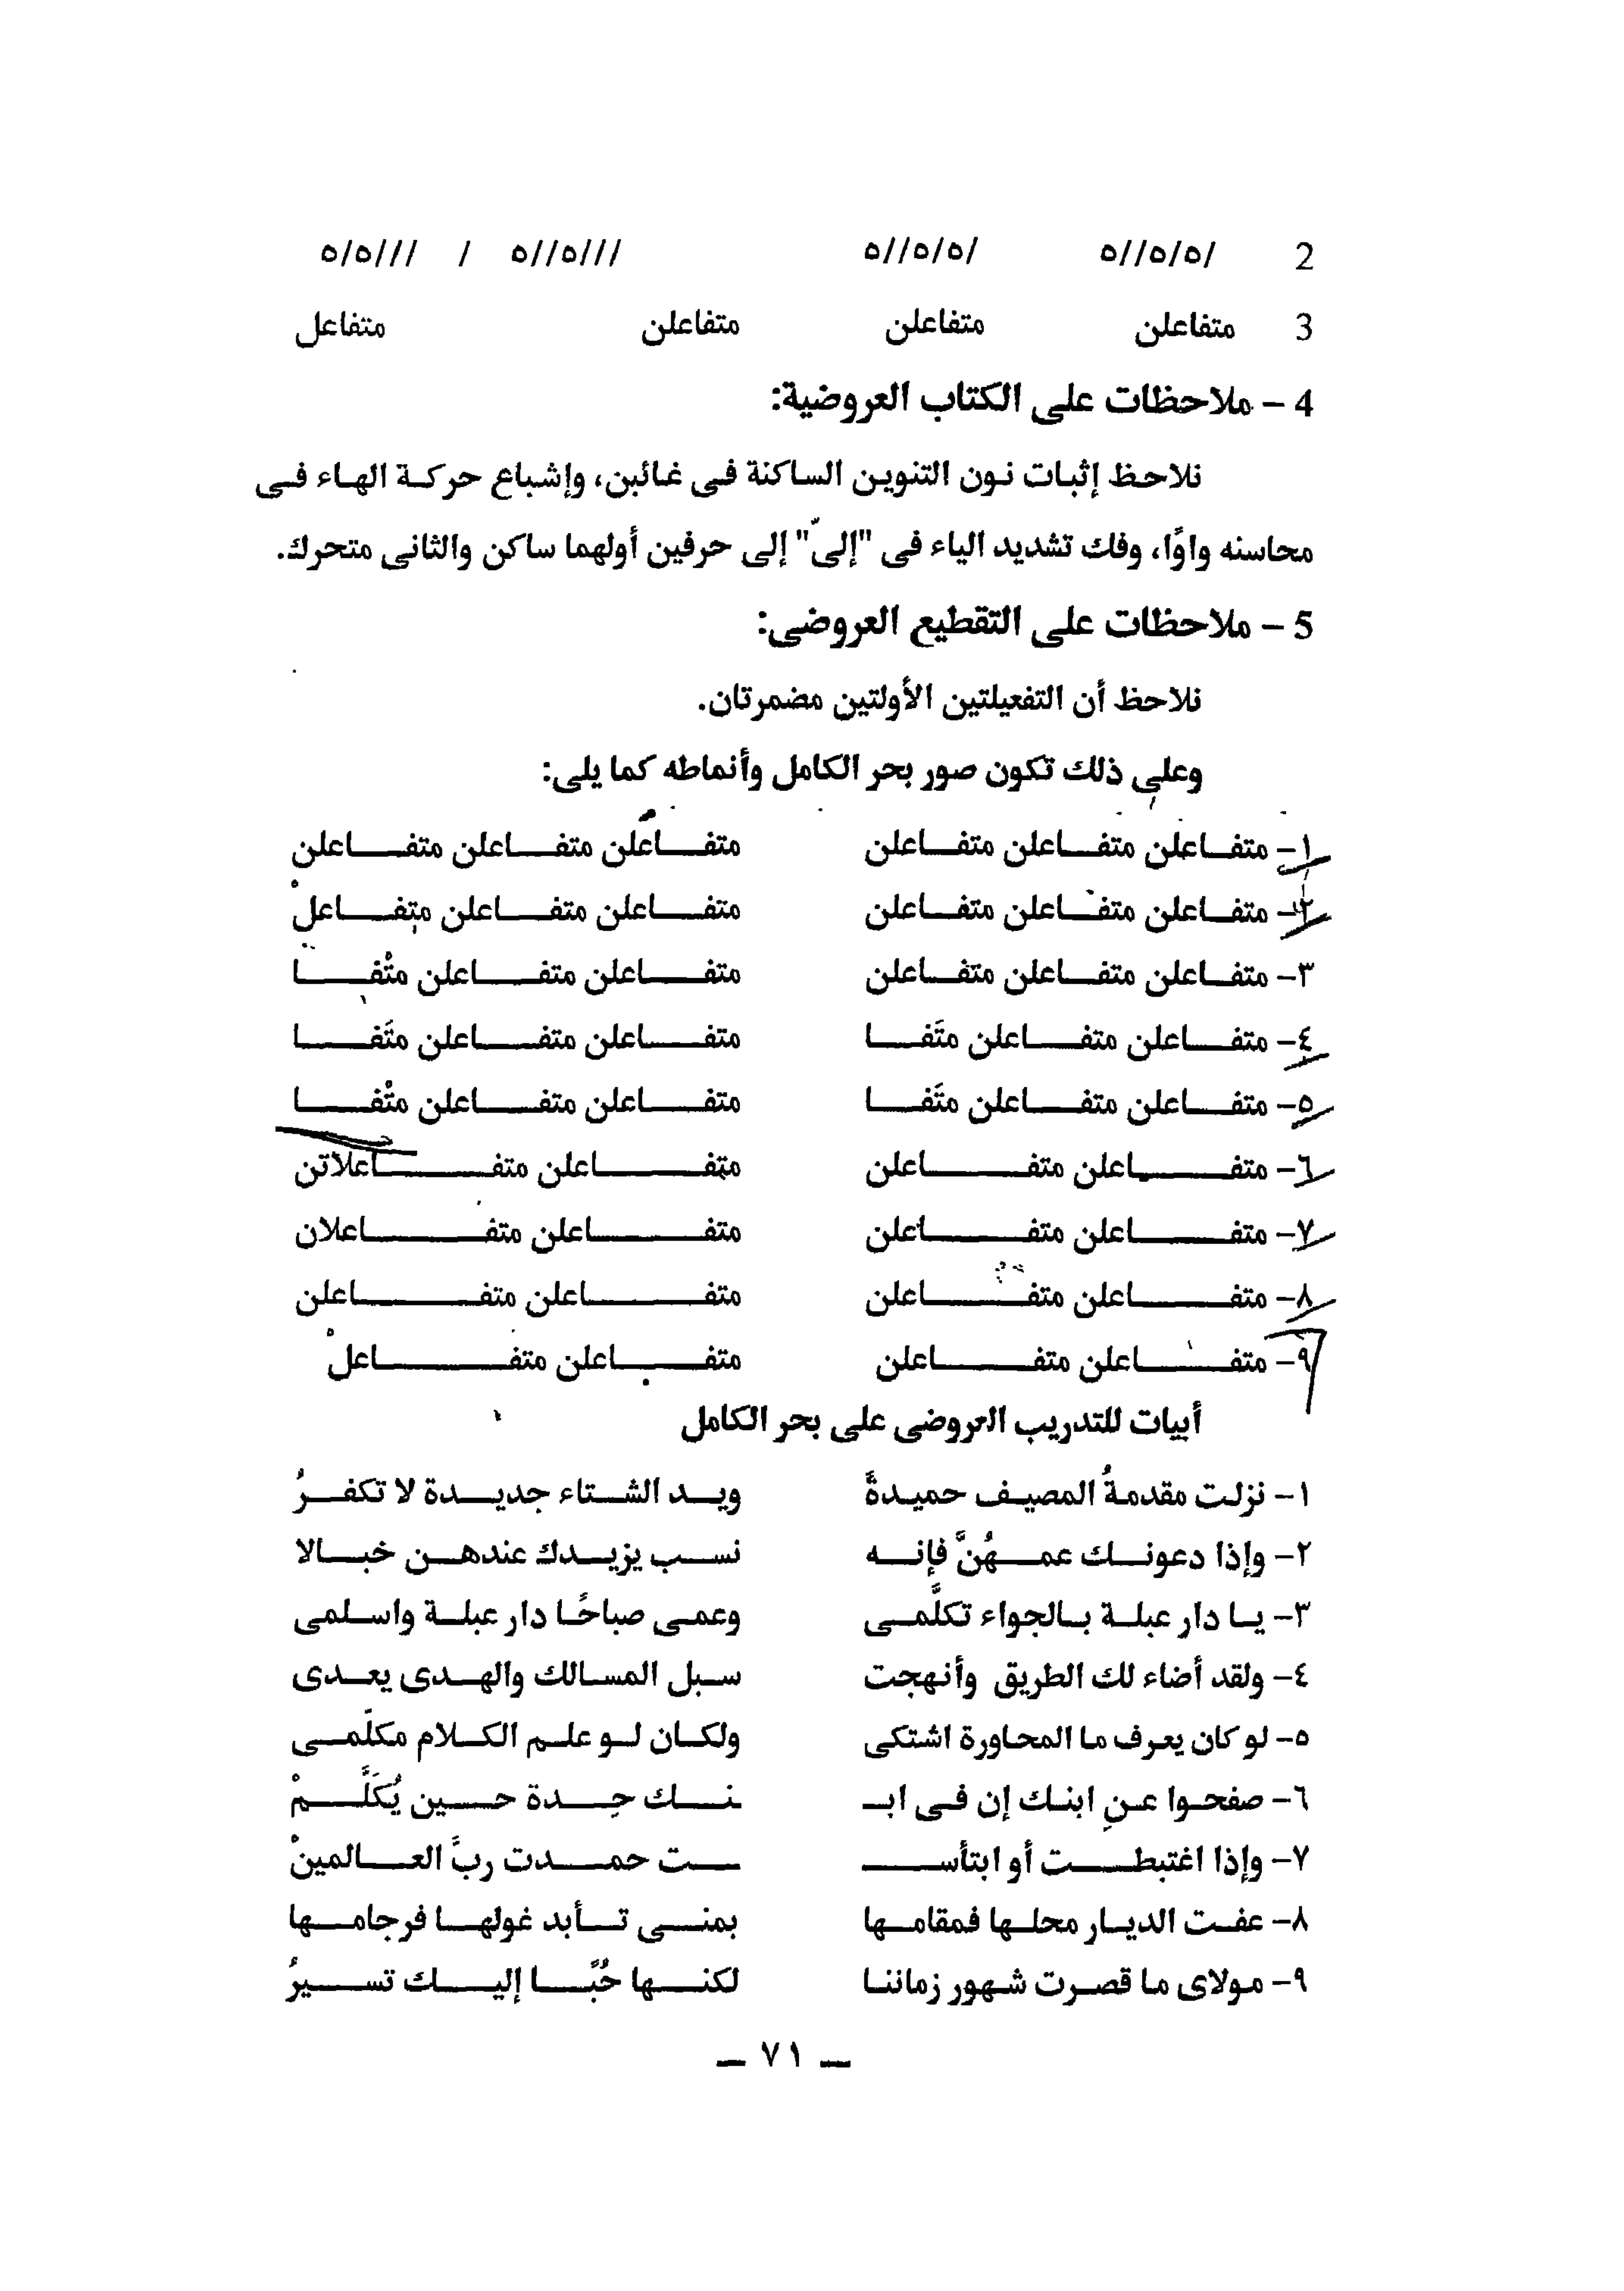 2 /٥/٥//٥ /٥/٥//٥ ///٥//٥ / ///٥/٥
3 متفاعلن متفاعلن متفاعلن متفاعل
4 – ملاحظات على الكتاب العروضية:
نلاحظ إثبات نون التنوين الساكنة فى غائبن، وإشباع حركة الهاء فى
محاسنه واوًا، وفك تشديد الياء فى "إلىّ" إلى حرفين أولهما ساكن والثانى متحرك.
5 – ملاحظات على التقطيع العروضى:
نلاحظ أن التفعيلتين الأولتين مضمرتان.
وعلى ذلك تكون صور بحر الكامل وأنماطه كما يلى:
١– متفاعلن متفاعلن متفاعلن متفاعلن متفاعلن متفاعلن
٢– متفاعلن متفاعلن متفاعلن متفاعلن متفاعلن متفاعلْ
٣– متفاعلن متفاعلن متفاعلن متفاعلن متفاعلن متْفا
٤– متفاعلن متفاعلن متَفا متفاعلن متفاعلن متَفا
٥– متفاعلن متفاعلن متَفا متفاعلن متفاعلن متْفا
٦– متفاعلن متفاعلن متفاعلن متفاعلاتن
٧– متفاعلن متفاعلن متفاعلن متفاعلان
٨– متفاعلن متفاعلن متفاعلن متفاعلن
٩– متفاعلن متفاعلن متفاعلن متفاعلْ
أبيات للتدريب العروضى على بحر الكامل
١– نزلت مقدمةُ المصيف حميدةً ويد الشتاء جديدة لا تكفرُ
٢– وإذا دعونك عمهُنَّ فإنه نسب يزيدك عندهن خبالا
٣– يا دار عبلة بالجواء تكلَّمى وعمى صباحًا دار عبلة واسلمى
٤– ولقد أضاء لك الطريق وأنهجت سبل المسالك والهدى يعدى
٥– لو كان يعرف ما المحاورة اشتكى ولكان لو علم الكلام مكلّمى
٦– صفحوا عنِ ابنك إن فى ابـ ـنك حِدة حين يُكَلَّمْ
٧– وإذا اغتبطت أو ابتأسـ ـت حمدت ربَّ العالمينْ
٨– عفت الديار محلها فمقامها بمنى تأبد غولها فرجامها
٩– مولاى ما قصرت شهور زماننا لكنها حُبًّا إليك تسيرُ
– ٧١ –